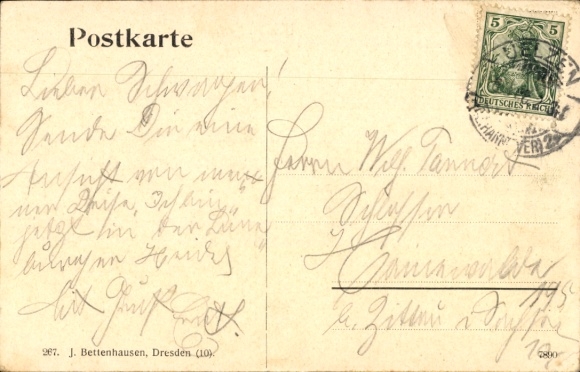 Postkarte
Lieber Schwager!
Sende Dir eine
Ansicht von mei-
ner Reise. Ich bin
jetzt in der Lüne-
burger Heide
Mit Gruß
Ernst.
5 5
DEUTSCHES REICH
UELZEN
(HANNOVER) 2
Herrn Wilh.
Schlosser
Hainewalde
195
b. Zittau i. Sachsen
267. J. Bettenhausen, Dresden (10).
7890